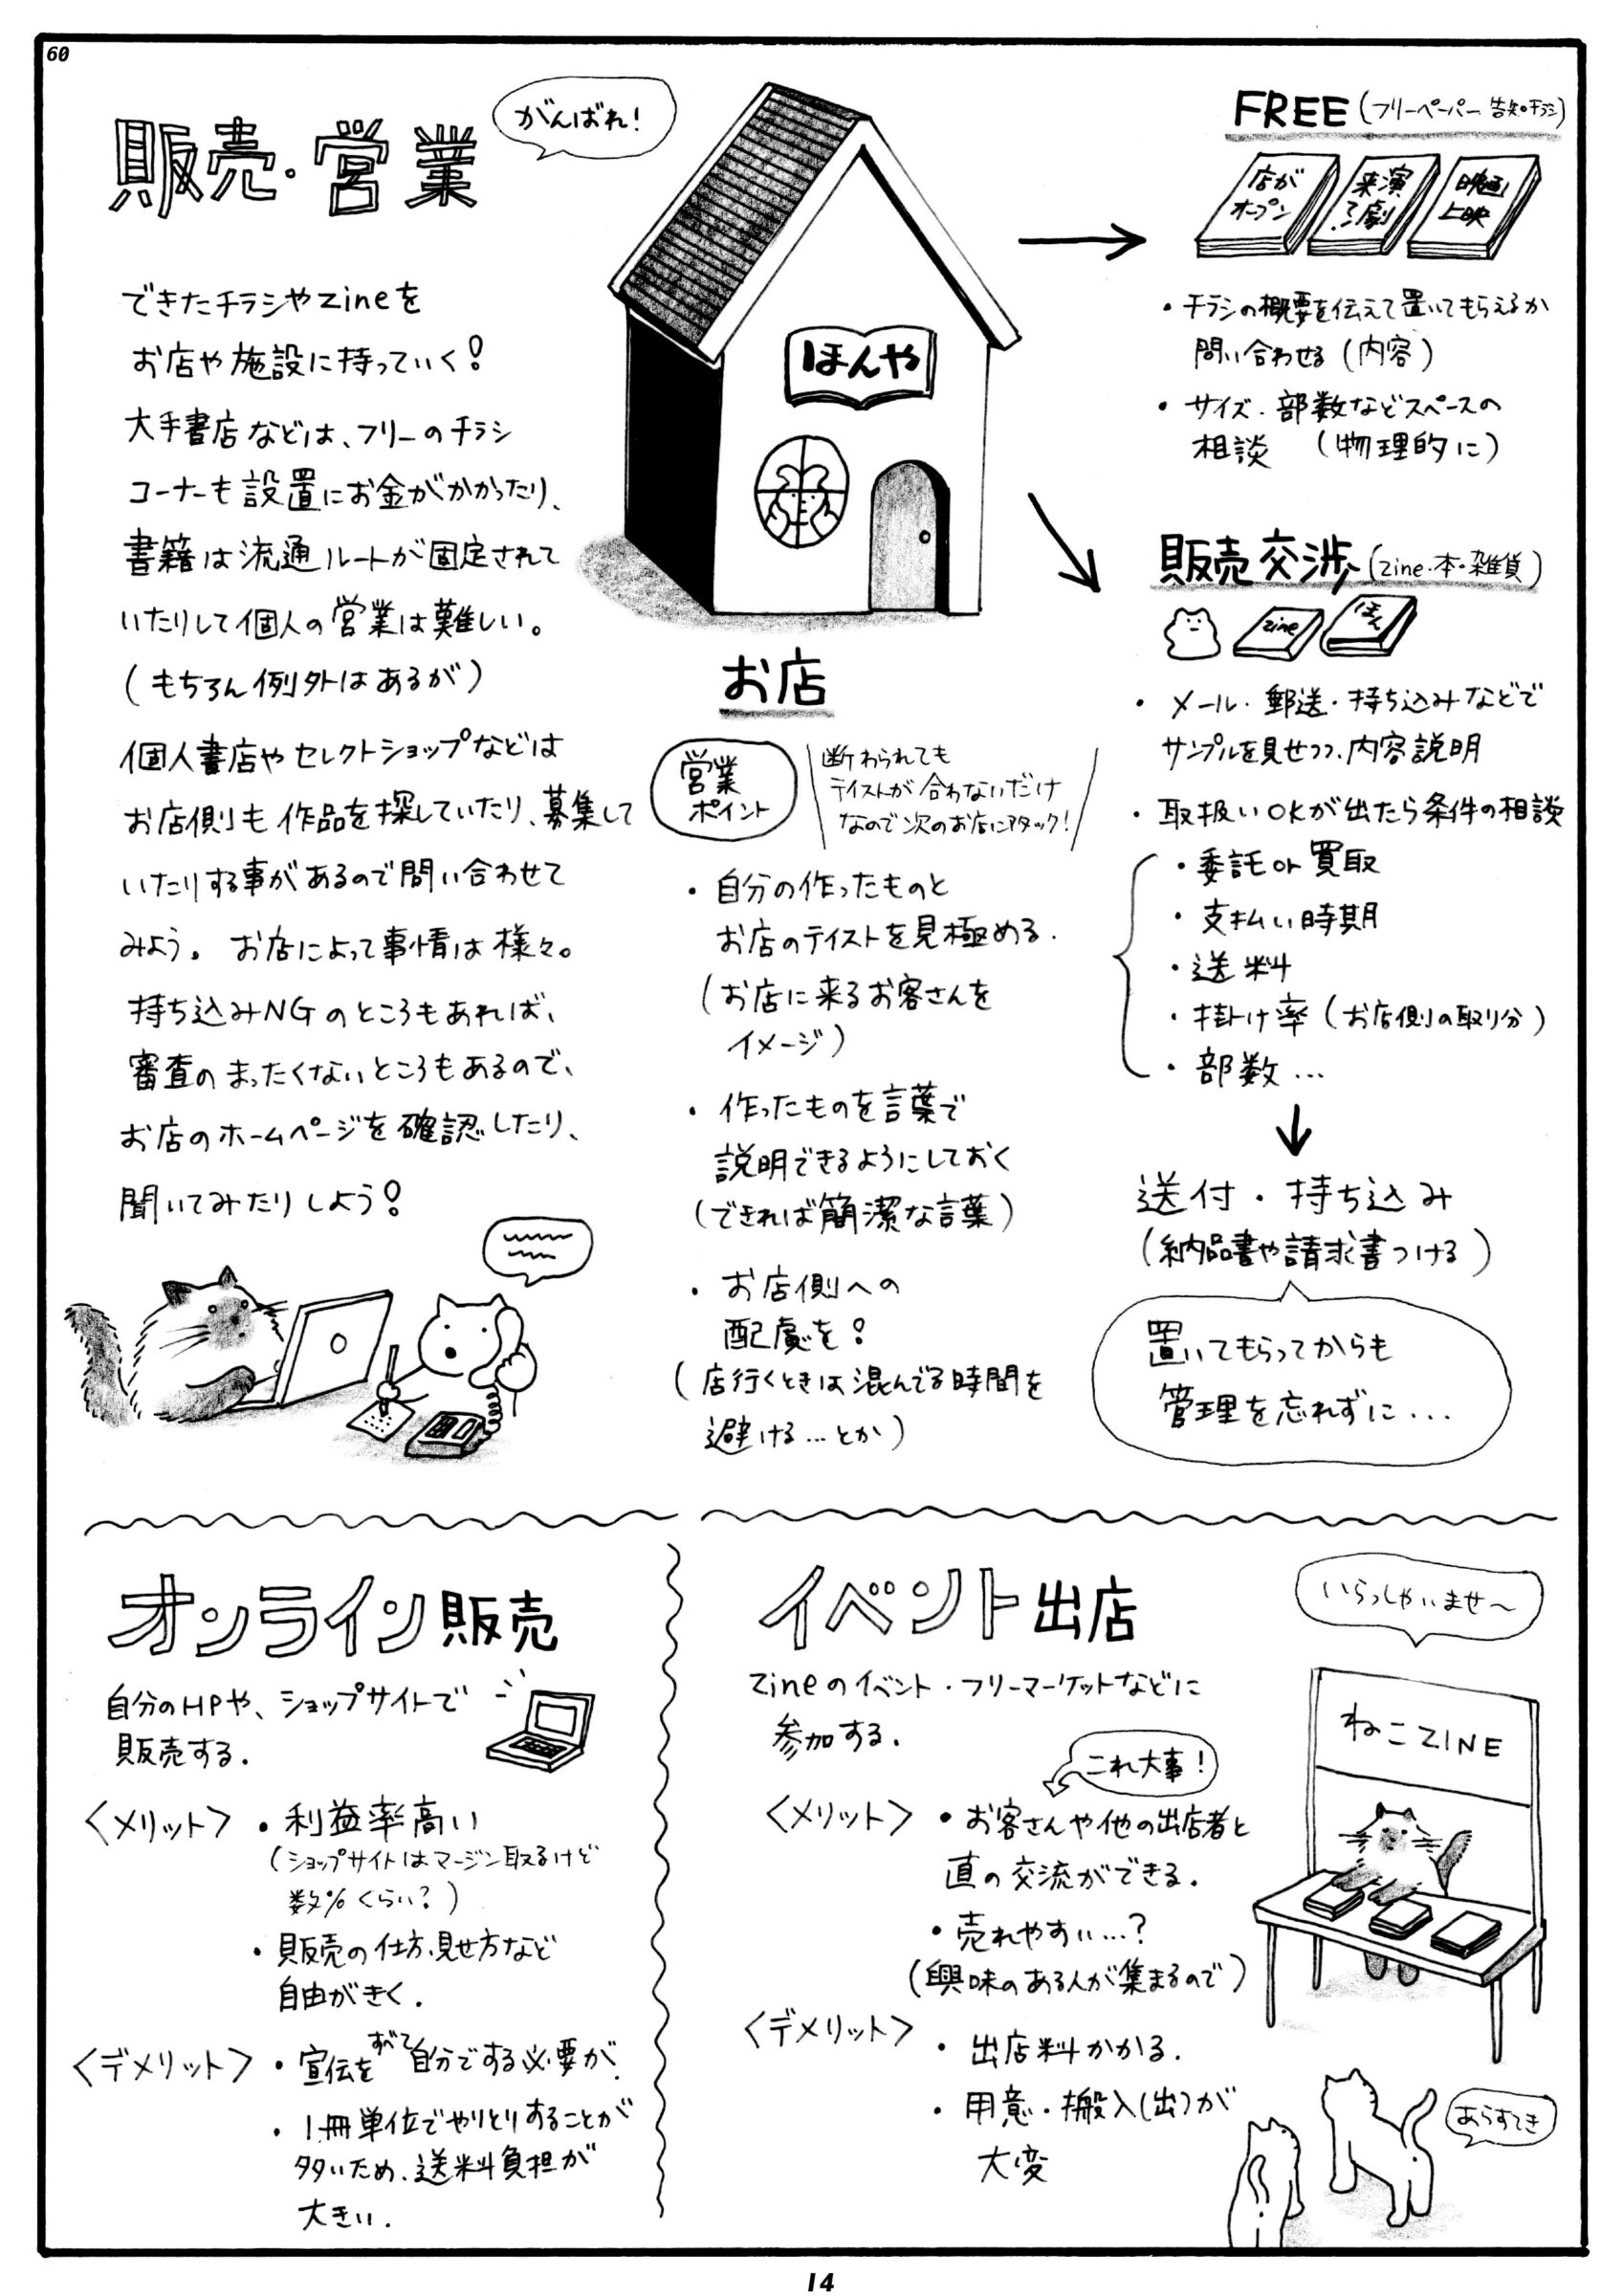 60
販売・営業
がんばれ!
できたチラシやzineを
お店や施設に持っていく!
大手書店などは、フリーのチラシ
コーナーも設置にお金がかかったり、
書籍は流通ルートが固定されて
いたりして個人の営業は難しい。
(もちろん例外はあるが)
個人書店やセレクトショップなどは
お店側も作品を探していたり、募集して
いたりする事があるので問い合わせて
みよう。お店によって事情は様々。
持ち込みNGのところもあれば、
審査のまったくないところもあるので、
お店のホームページを確認したり、
聞いてみたりしよう!
ほんや
お店
営業
ポイント
断わられても
テイストが合わないだけ
なので次のお店にアタック!
・自分の作ったものと
お店のテイストを見極める.
(お店に来るお客さんを
イメージ)
・作ったものを言葉で
説明できるようにしておく
(できれば簡潔な言葉)
・お店側への
配慮を!
(店行くときは混んでる時間を
避ける…とか)
FREE(フリーペーパー 告知チラシ)
店が
オープン
演劇
来てみ
映画
上映
・チラシの概要を伝えて置いてもらえるか
問い合わせる(内容)
・サイズ・部数などスペースの
相談 (物理的に)
販売交渉(zine・本・雑貨)
zine
ほん
・メール・郵送・持ち込みなどで
サンプルを見せつつ、内容説明
・取扱いOKが出たら条件の相談
・委託or買取
・支払い時期
・送料
・掛け率(お店側の取り分)
・部数…
送付・持ち込み
(納品書や請求書つける)
置いてもらってからも
管理を忘れずに…
オンライン販売
自分のHPや、ショップサイトで
販売する.
〈メリット〉・利益率高い
(ショップサイトはマージン取るけど
数%くらい?)
・販売の仕方、見せ方など
自由がきく.
〈デメリット〉・宣伝をすべて自分でする必要が.
・1冊単位でやりとりすることが
多いため、送料負担が
大きい.
イベント出店
zineのイベント・フリーマーケットなどに
参加する.
これ大事!
〈メリット〉・お客さんや他の出店者と
直の交流ができる.
・売れやすい…?
(興味のある人が集まるので)
〈デメリット〉・出店料かかる.
・用意・搬入(出)が
大変
いらっしゃいませ〜
ねこZINE
あらすてき
14